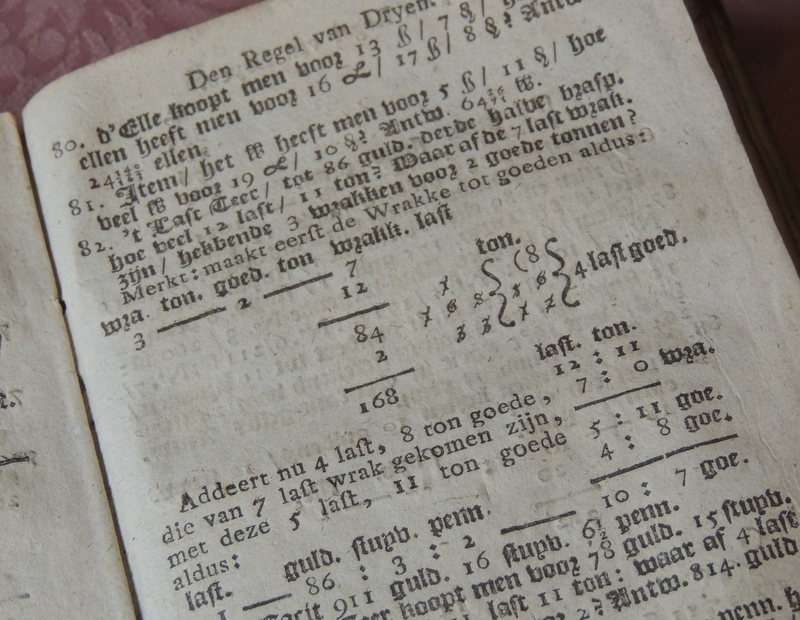 Den Regel van Dryen
80. d'Elle koopt men vooꝛ 13 ß/ 7 §/
ellen heeft men vooꝛ 16 £/ 17 ß/ 8 §? Antw
24 ellen.
81. Item/ het ℔ heeft men vooꝛ 5 ß/ 11 §/ hoe
veel ℔ vooꝛ 19 £/ 10 §? Antw. 64 ℔.
82. 't Last Teer/ tot 86 guld. derde halve bꝛasp.
hoe veel 12 last/ 11 ton? Waar af de 7 last wꝛak.
zijn/ hebbende 3 wꝛakken vooꝛ 2 goede tonnen?
Merkt: maakt eerſt de Wrakke tot goeden aldus:
wꝛa. ton. goed. ton wꝛakk. laſt
3 — 2 — 7 ton.
12 (8
84 4 laſt goed.
2
168
laſt. ton.
12 : 11
Addeert nu 4 laſt, 8 ton goede, 7 : 0 wꝛa.
die van 7 laſt wrak gekomen zijn, 5 : 11 goe.
met deze 5 laſt, 11 ton goede 4 : 8 goe.
aldus: 10 : 7 goe.
laſt. guld. ſtuyv. penn.
1 — 86 : 3 : 2 —
Facit 911 guld. 16 ſtuyv. 6½ penn.
Teer koopt men vooꝛ 78 guld. 15 ſtuyv.
laſt 11 ton: waar af 4 laſt
2? Antw. 814. guld
penn.